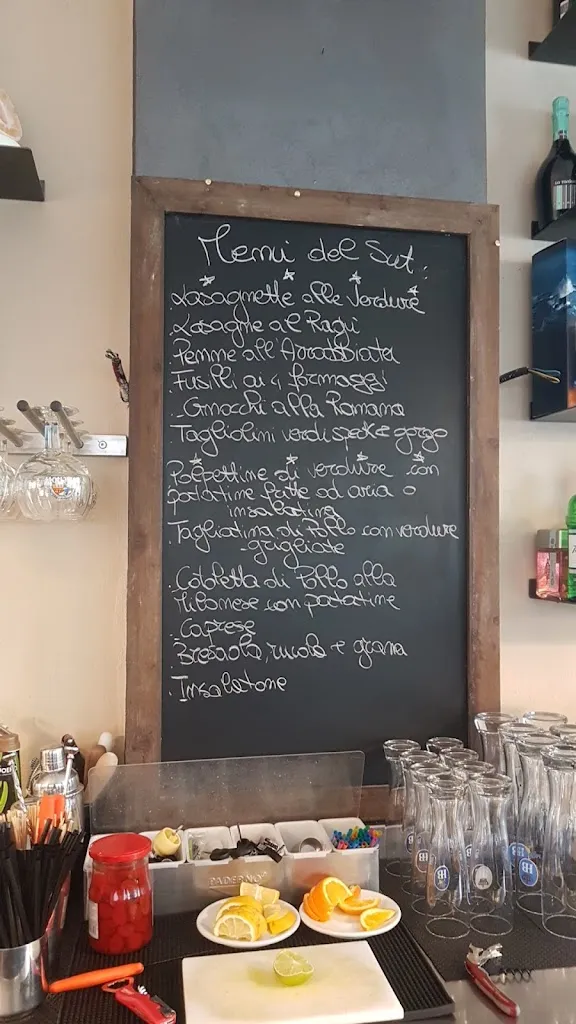 Menù del Sut:
Lasagnette alle Verdure
Lasagne al Ragù
Penne all'Arrabbiata
Fusilli ai 4 formaggi
Gnocchi alla Romana
Tagliolini verdi speck e gorgo
Polpettine di verdure con
patatine fritte ad aria o
insalatina
Tagliatina di Pollo con verdure
grigliate
Cotoletta di Pollo alla
Milanese con patatine
Caprese
Bresaola, rucola e grana
Insalatone
PADERNO
HB
HB